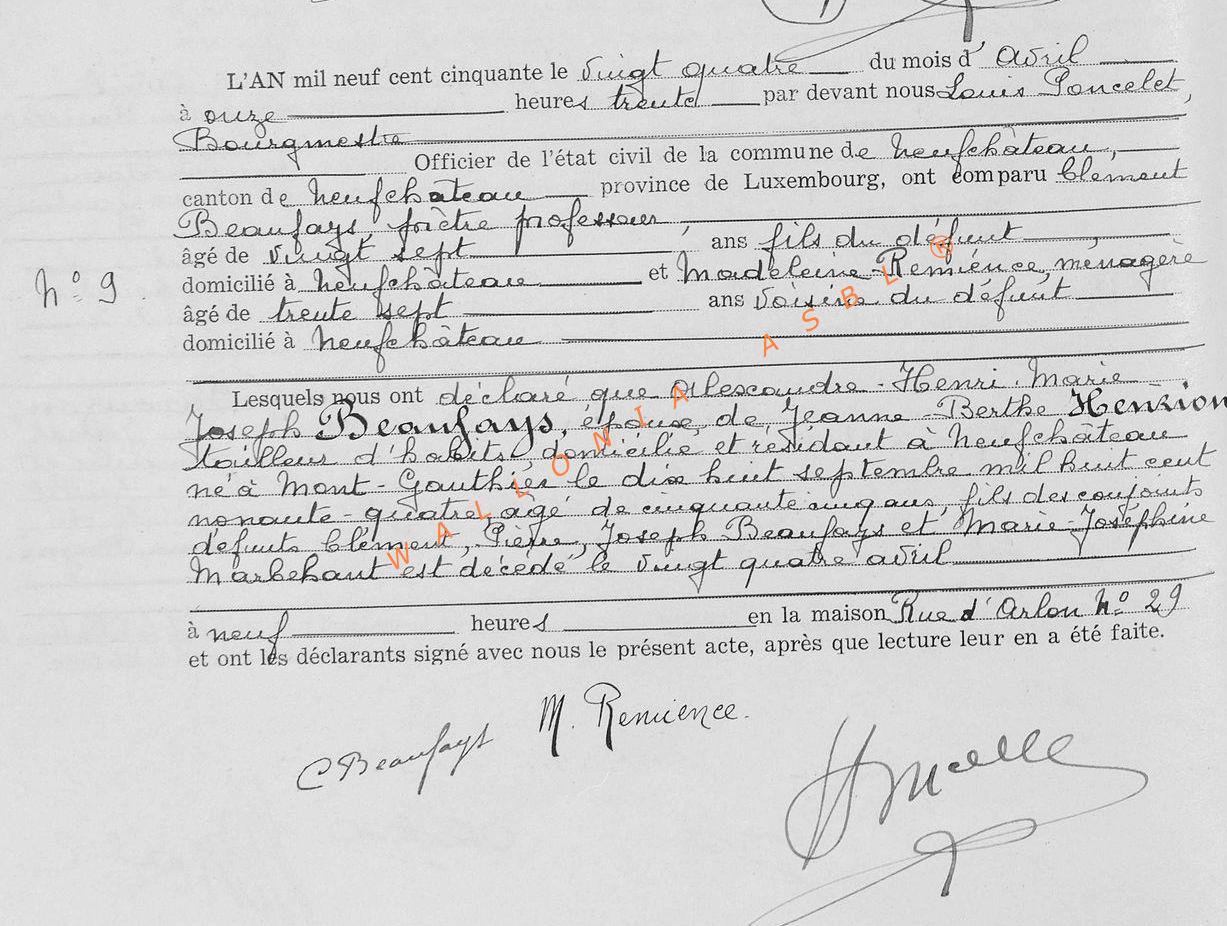 L'AN mil neuf cent cinquante le vingt quatre du mois d'avril
à onze heures trente par devant nous Louis Poncelet,
Bourgmestre
Officier de l'état civil de la commune de Neufchâteau,
canton de Neufchâteau province de Luxembourg, ont comparu Clément
Beaufays, prêtre professeur,
âgé de vingt sept ans fils du défunt,
domicilié à Neufchâteau et Madeleine Remience, ménagère
âgé de trente sept ans voisine du défunt
domicilié à Neufchâteau
Lesquels nous ont déclaré que Alexandre-Henri-Marie
Joseph Beaufays, époux de Jeanne-Berthe Henrion
tailleur d'habits, domicilié et résidant à Neufchâteau
né à Mont-Gauthier le dix huit septembre mil huit cent
nonante-quatre, âgé de cinquante cinq ans, fils des conjoints
défunts Clément, Pierre, Joseph Beaufays et Marie-Joséphine
Marbehant est décédé le vingt quatre avril
à neuf heures en la maison Rue d'Arlon N° 29
et ont les déclarants signé avec nous le présent acte, après que lecture leur en a été faite.
N° 9.
C Beaufays
M. Remience.
WALLONIA ASBL ®